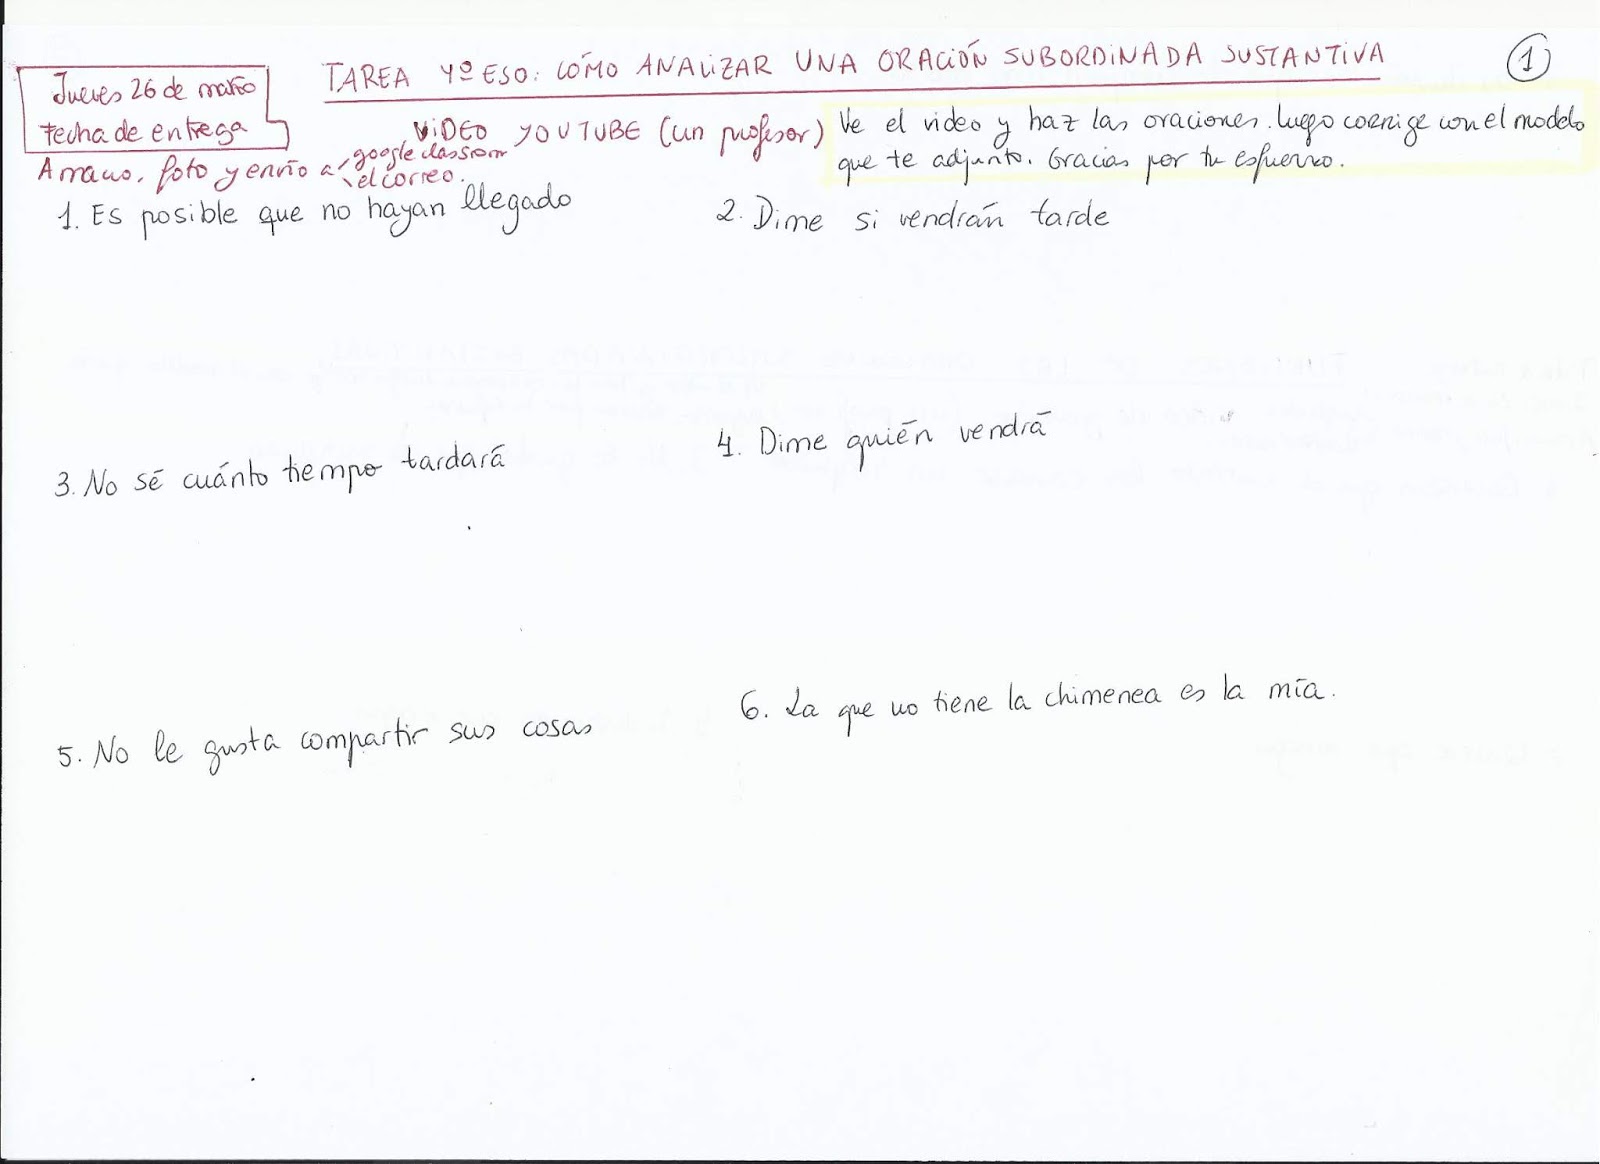 TAREA 4º ESO: CÓMO ANALIZAR UNA ORACIÓN SUBORDINADA SUSTANTIVA
1
Jueves 26 de marzo
fecha de entrega
VIDEO YOUTUBE (un profesor)
Ve el video y haz las oraciones. Luego corrige con el modelo
que te adjunto. Gracias por tu esfuerzo.
A mano, foto y envío a google classroom
el correo.
1. Es posible que no hayan llegado
2. Dime si vendrán tarde
3. No sé cuánto tiempo tardará
4. Dime quién vendrá
5. No le gusta compartir sus cosas
6. La que no tiene la chimenea es la mía.